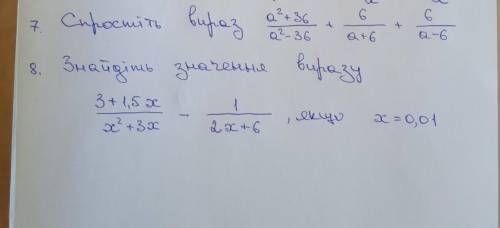 7. Спростіть вираз (a²+36)/(a²-36) + 6/(a+6) + 6/(a-6)
8. Знайдіть значення виразу
(3+1,5x)/(x²+3x) - 1/(2x+6), якщо x=0,01